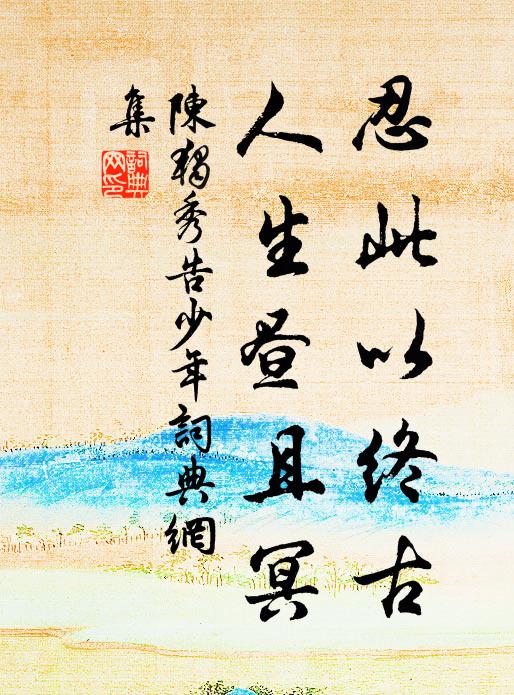 忍此以終古
人生昼且冥
陳独秀告少年詞典網
集
詞典
网印